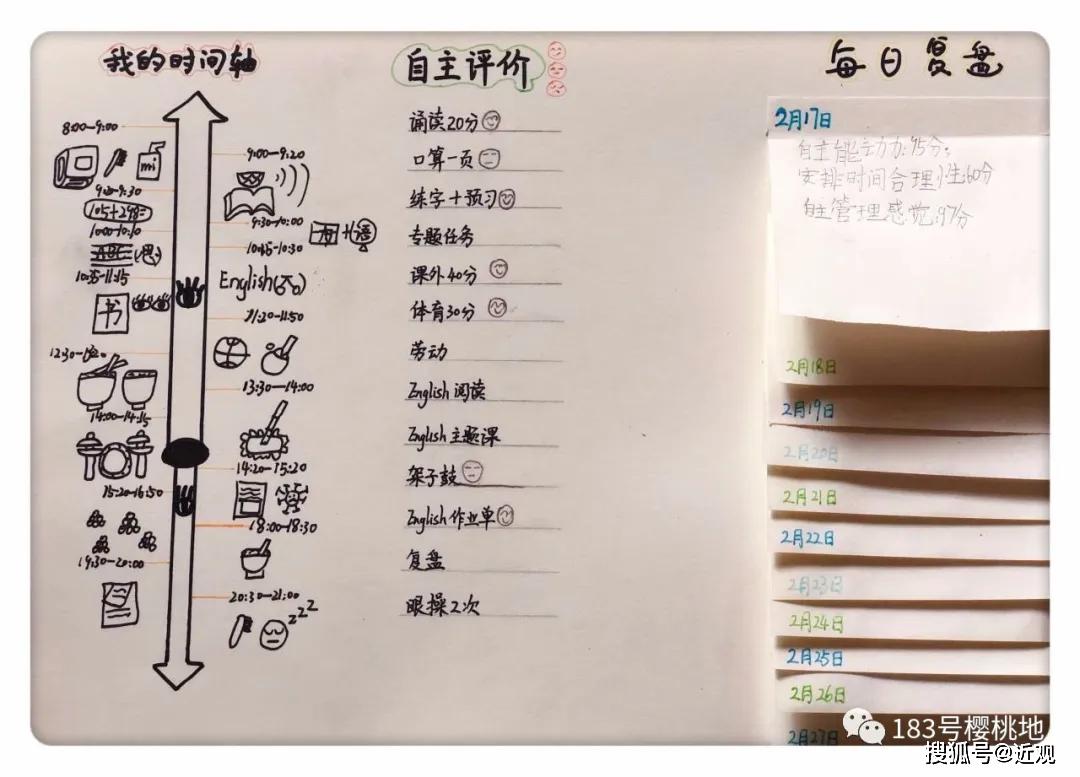 我的时间轴
8:00—9:00
9:00—9:20
mi
9:20-9:30
105+298=
9:30-10:00
10:00-10:10
语
10:15-10:30
ABC
10:35-11:15
English
书
11:20-11:50
13:30—14:00
14:00-14:15
14:20-15:20
15:20-16:50
18:00-18:30
19:30-20:00
20:30-21:00
zzz
自主评价
诵读20分
口算一页
练字+预习
专题任务
课外40分
体育30分
劳动
English 阅读
English 主题课
架子鼓
English 作业单
复盘
眼操2次
每日复盘
2月17日
自主能动力:95分;
安排时间合理性:60分
自主管理感觉:97分
2月18日
2月19日
2月20日
2月21日
2月22日
2月23日
2月24日
2月25日
2月26日
2月27日
183号樱桃地
搜狐号@近观